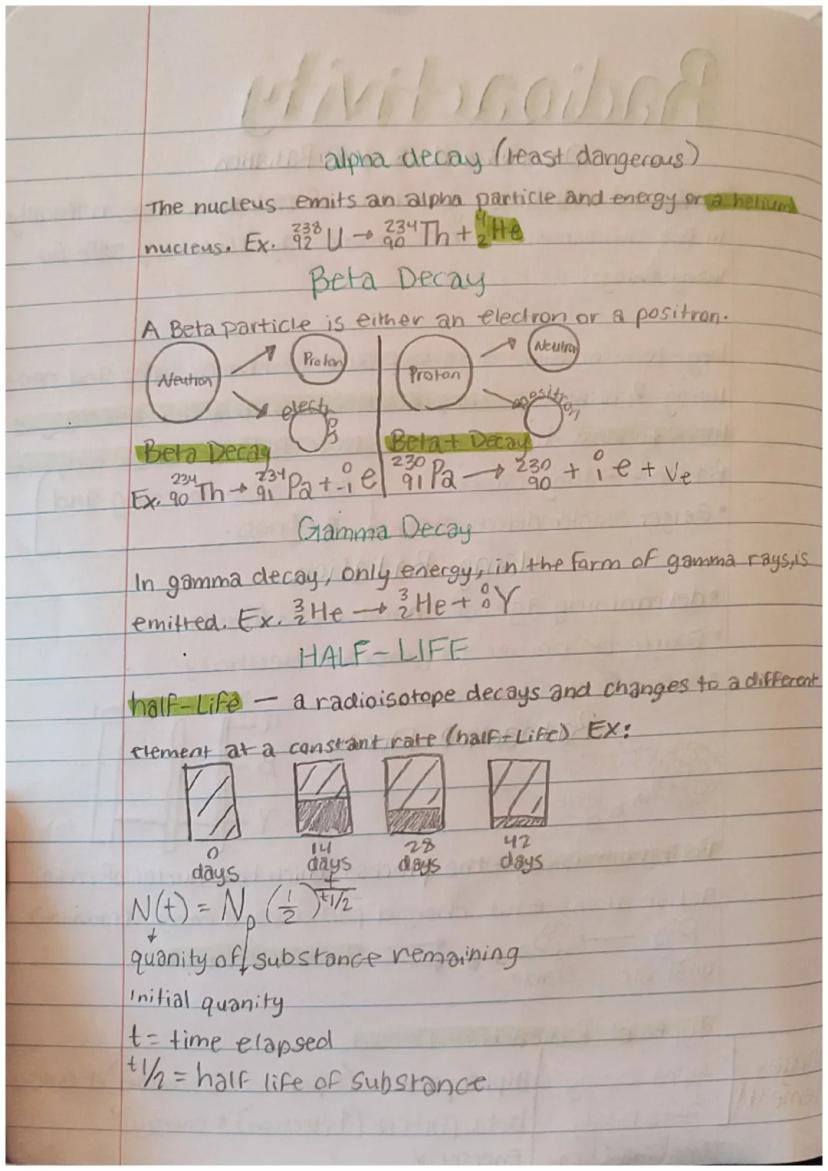 Radioactivity
alpha decay (least dangerous)
The nucleus emits an alpha particle and energy or a helium
nucleus. Ex. ²³⁸₉₂U → ²³⁴₉₀Th + ⁴₂He
Beta Decay
A Beta particle is either an electron or a positron.
Neutron Proton Proton Neutron
electron positron
Beta Decay Beta+ Decay
Ex. ²³⁴₉₀Th → ²³⁴₉₁Pa + ⁰₋₁e ²³⁰₉₁Pa → ²³⁰₉₀ + ⁰₁e + Ve
Gamma Decay
In gamma decay, only energy, in the form of gamma rays, is
emitted. Ex. ³₂He → ³₂He + ⁰₀Y
HALF-LIFE
half-Life — a radioisotope decays and changes to a different
element at a constant rate (half-Life) Ex:
0 14 28 42
days days days days
N(t) = N₀ (1/2)^(t/t1/2)
quanity of substance remaining
initial quanity
t = time elapsed
t1/2 = half life of substance